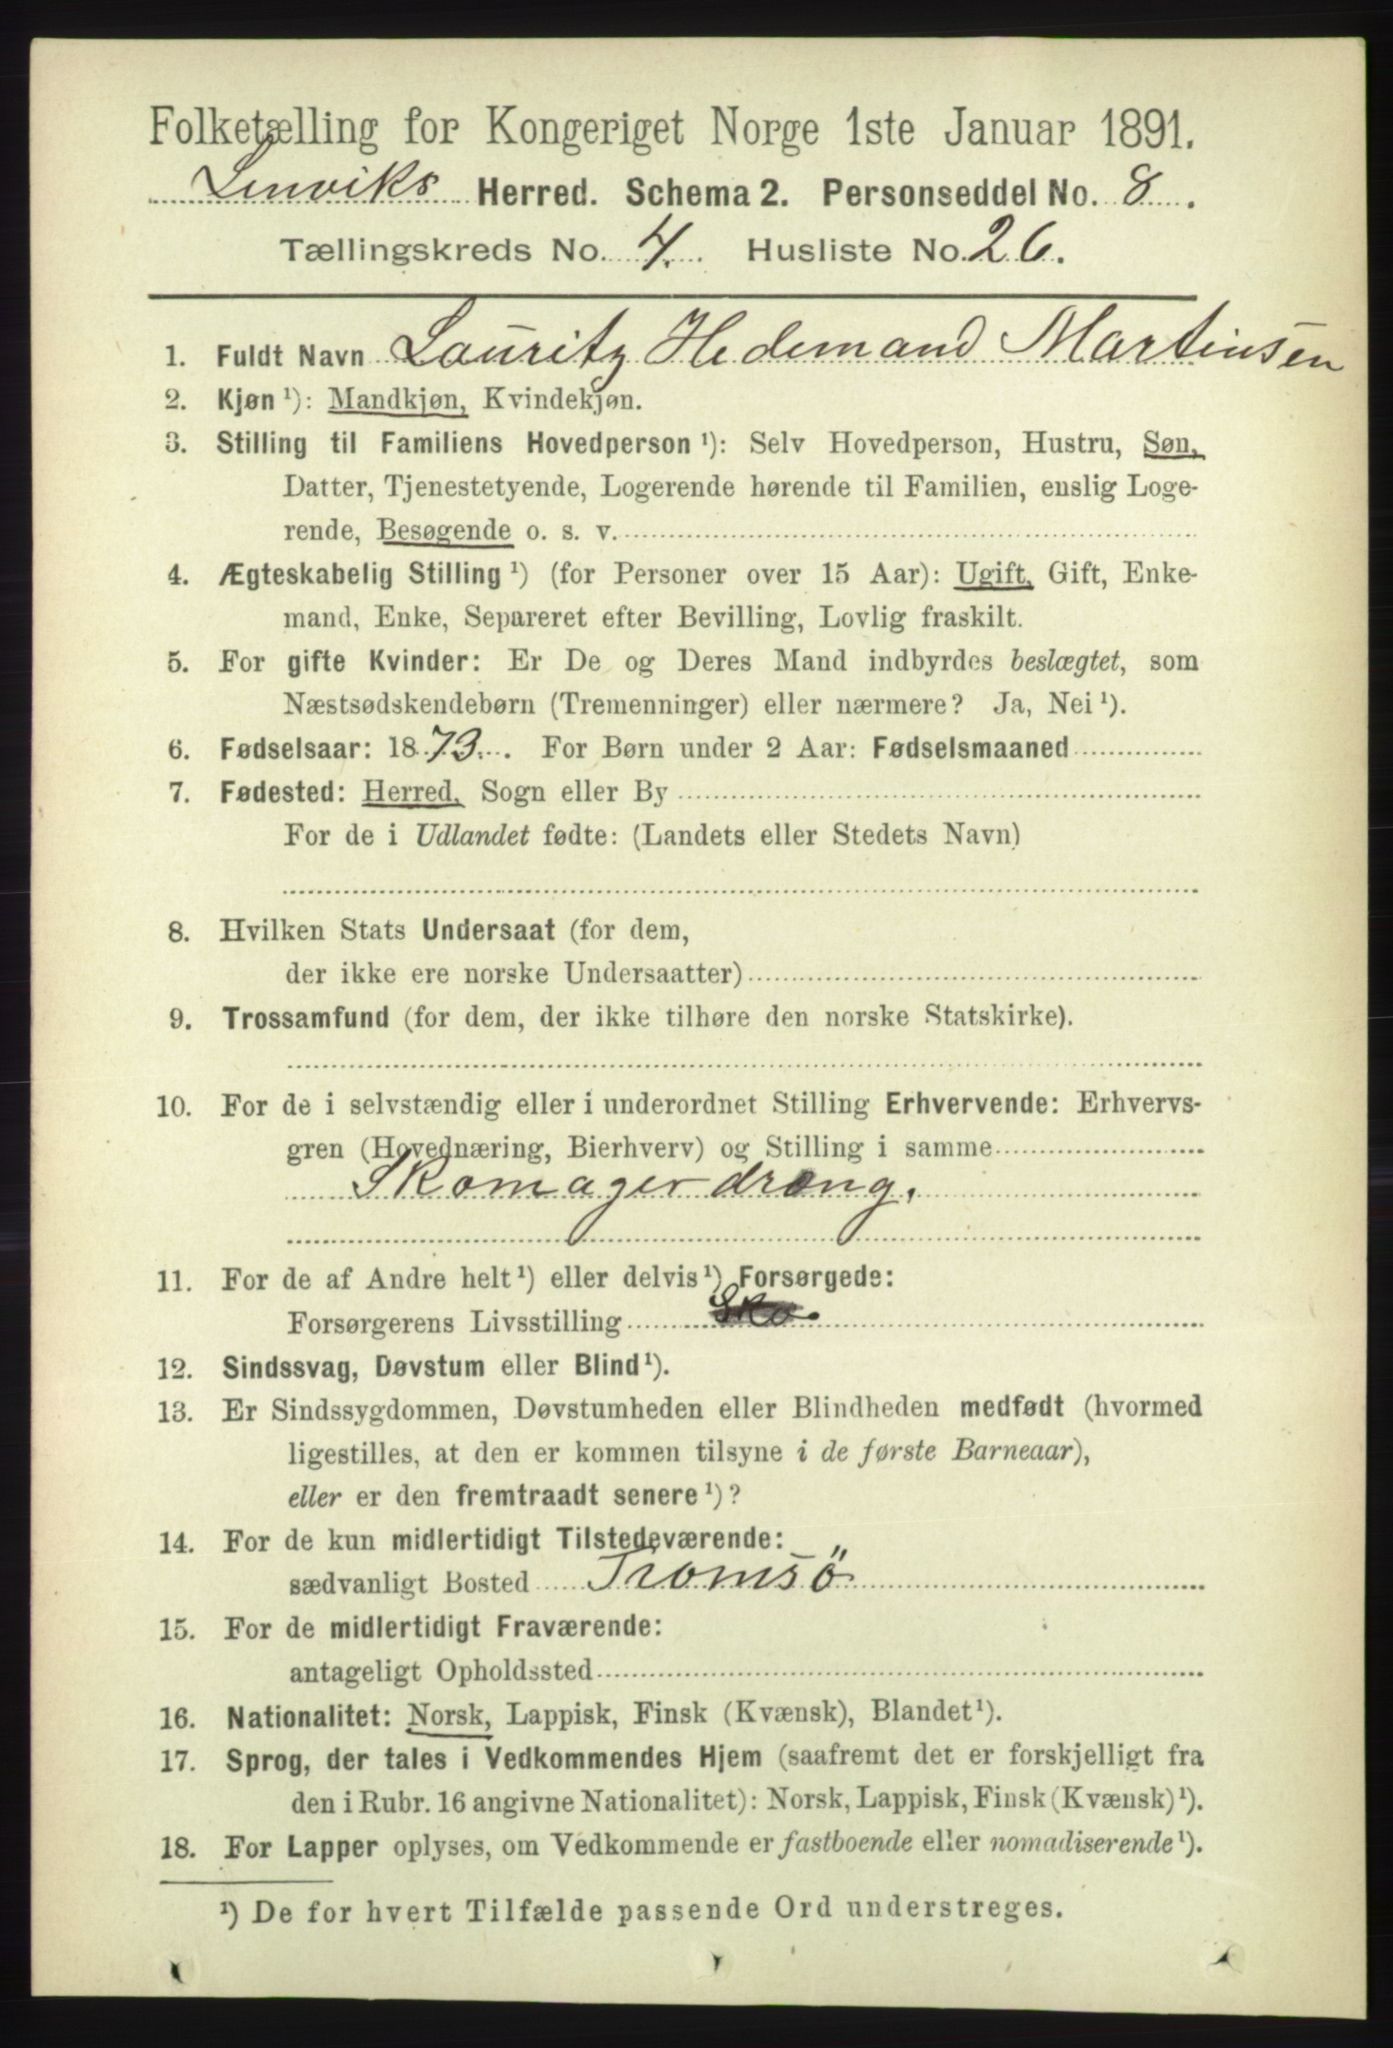 Folketælling for Kongeriget Norge 1ste Januar 1891.
Lenviks Herred. Schema 2. Personseddel No. 8.
Tællingskreds No. 4. Husliste No. 26.
1. Fuldt Navn Lauritz Hedemand Martinsen
2. Kjøn ¹): Mandkjøn, Kvindekjøn.
3. Stilling til Familiens Hovedperson ¹): Selv Hovedperson, Hustru, Søn,
Datter, Tjenestetyende, Logerende hørende til Familien, enslig Loge-
rende, Besøgende o. s. v.
4. Ægteskabelig Stilling ¹) (for Personer over 15 Aar): Ugift, Gift, Enke-
mand, Enke, Separeret efter Bevilling, Lovlig fraskilt.
5. For gifte Kvinder: Er De og Deres Mand indbyrdes beslægtet, som
Næstsødskendebørn (Tremenninger) eller nærmere? Ja, Nei ¹).
6. Fødselsaar: 1873. For Børn under 2 Aar: Fødselsmaaned
7. Fødested: Herred, Sogn eller By
For de i Udlandet fødte: (Landets eller Stedets Navn)
8. Hvilken Stats Undersaat (for dem,
der ikke ere norske Undersaatter)
9. Trossamfund (for dem, der ikke tilhøre den norske Statskirke).
10. For de i selvstændig eller i underordnet Stilling Erhvervende: Erhvervs-
gren (Hovednæring, Bierhverv) og Stilling i samme
Skomagerdræng.
11. For de af Andre helt ¹) eller delvis ¹) Forsørgede:
Forsørgerens Livsstilling Sko.
12. Sindssvag, Døvstum eller Blind ¹).
13. Er Sindssygdommen, Døvstumheden eller Blindheden medfødt (hvormed
ligestilles, at den er kommen tilsyne i de første Barneaar),
eller er den fremtraadt senere ¹)?
14. For de kun midlertidigt Tilstedeværende:
sædvanligt Bosted Tromsö
15. For de midlertidigt Fraværende:
antageligt Opholdssted
16. Nationalitet: Norsk, Lappisk, Finsk (Kvænsk), Blandet ¹).
17. Sprog, der tales i Vedkommendes Hjem (saafremt det er forskjelligt fra
den i Rubr. 16 angivne Nationalitet): Norsk, Lappisk, Finsk (Kvænsk) ¹).
18. For Lapper oplyses, om Vedkommende er fastboende eller nomadiserende ¹).
¹) De for hvert Tilfælde passende Ord understreges.